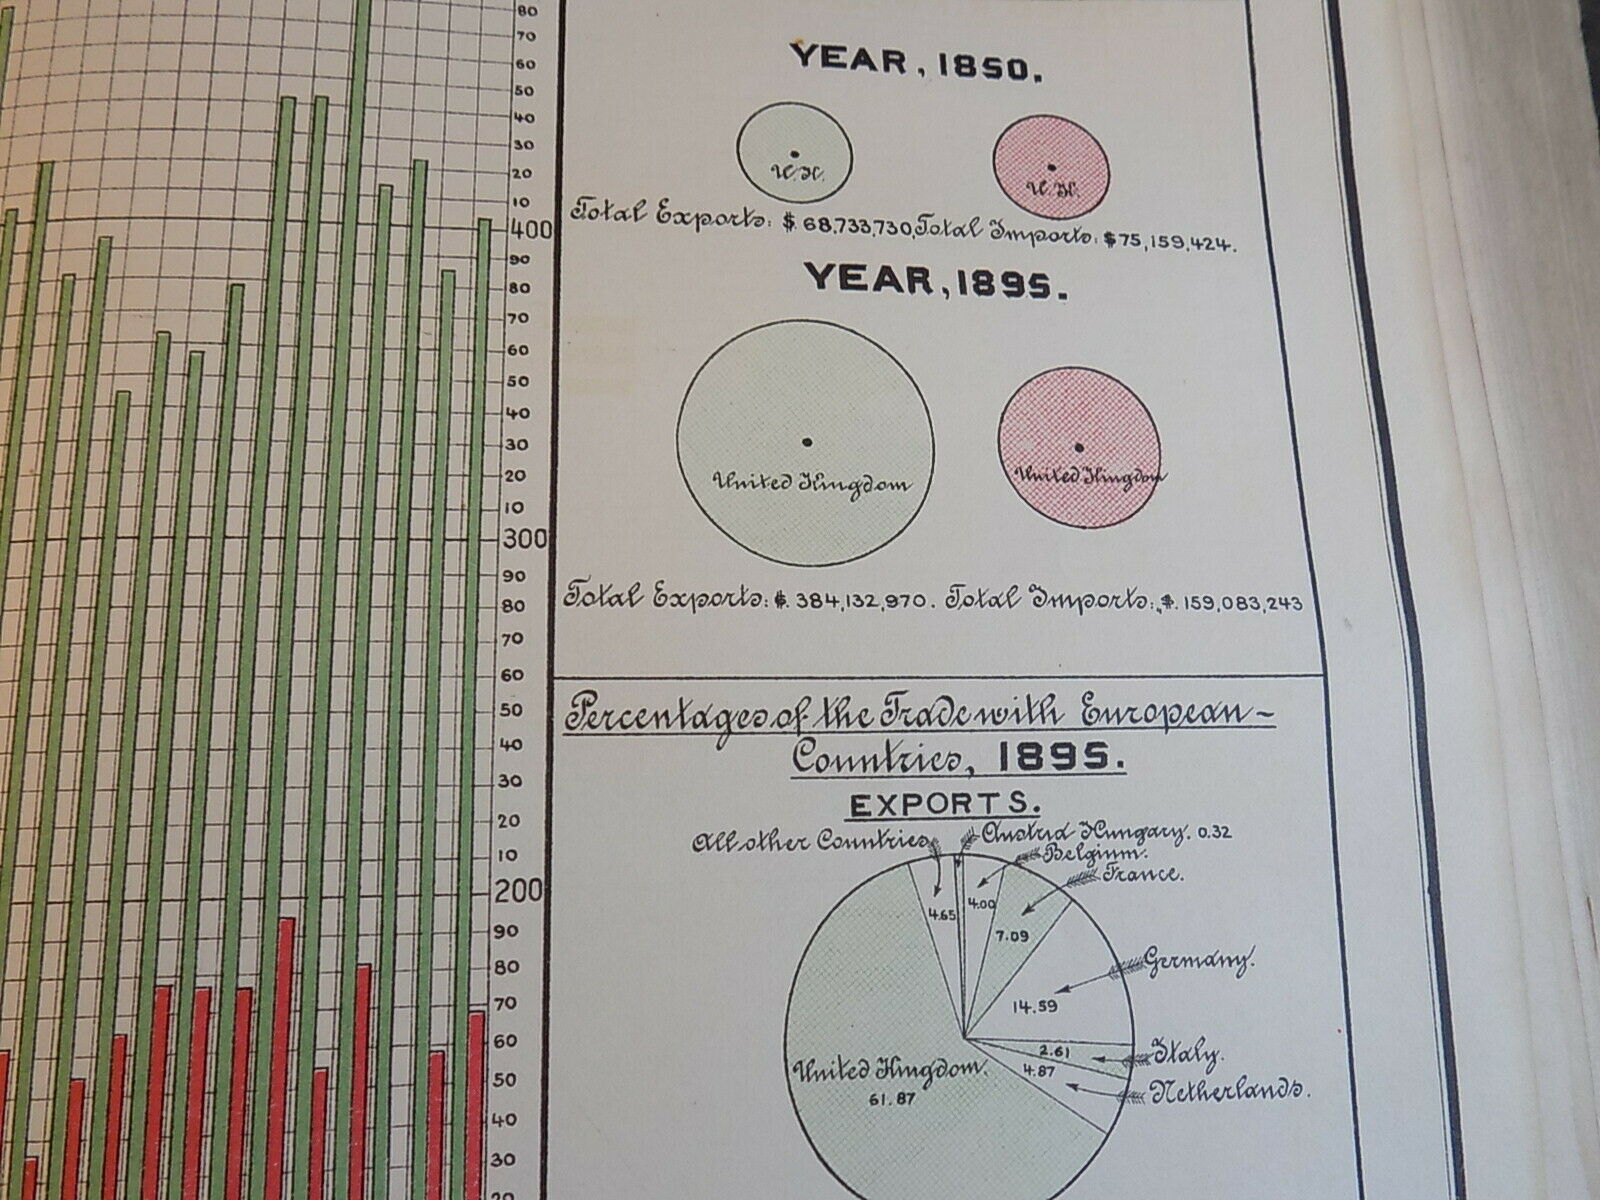 80
70
60
50
40
30
20
10
400
90
80
70
60
50
40
30
20
10
300
90
80
70
60
50
40
30
20
10
200
90
80
70
60
50
40
30
20
YEAR, 1850.
U.K. U.K.
Total Exports: $ 68,733,730, Total Imports: $75,159,424.
YEAR, 1895.
United Kingdom United Kingdom
Total Exports: $. 384,132,970. Total Imports: $. 159,083,243
Percentages of the Trade with European-
Countries, 1895.
EXPORTS.
All other Countries Austria Hungary. 0.32
Belgium.
France.
4.65 4.00
7.09
Germany.
14.59
2.61 Italy.
4.87
Netherlands.
United Kingdom.
61.87